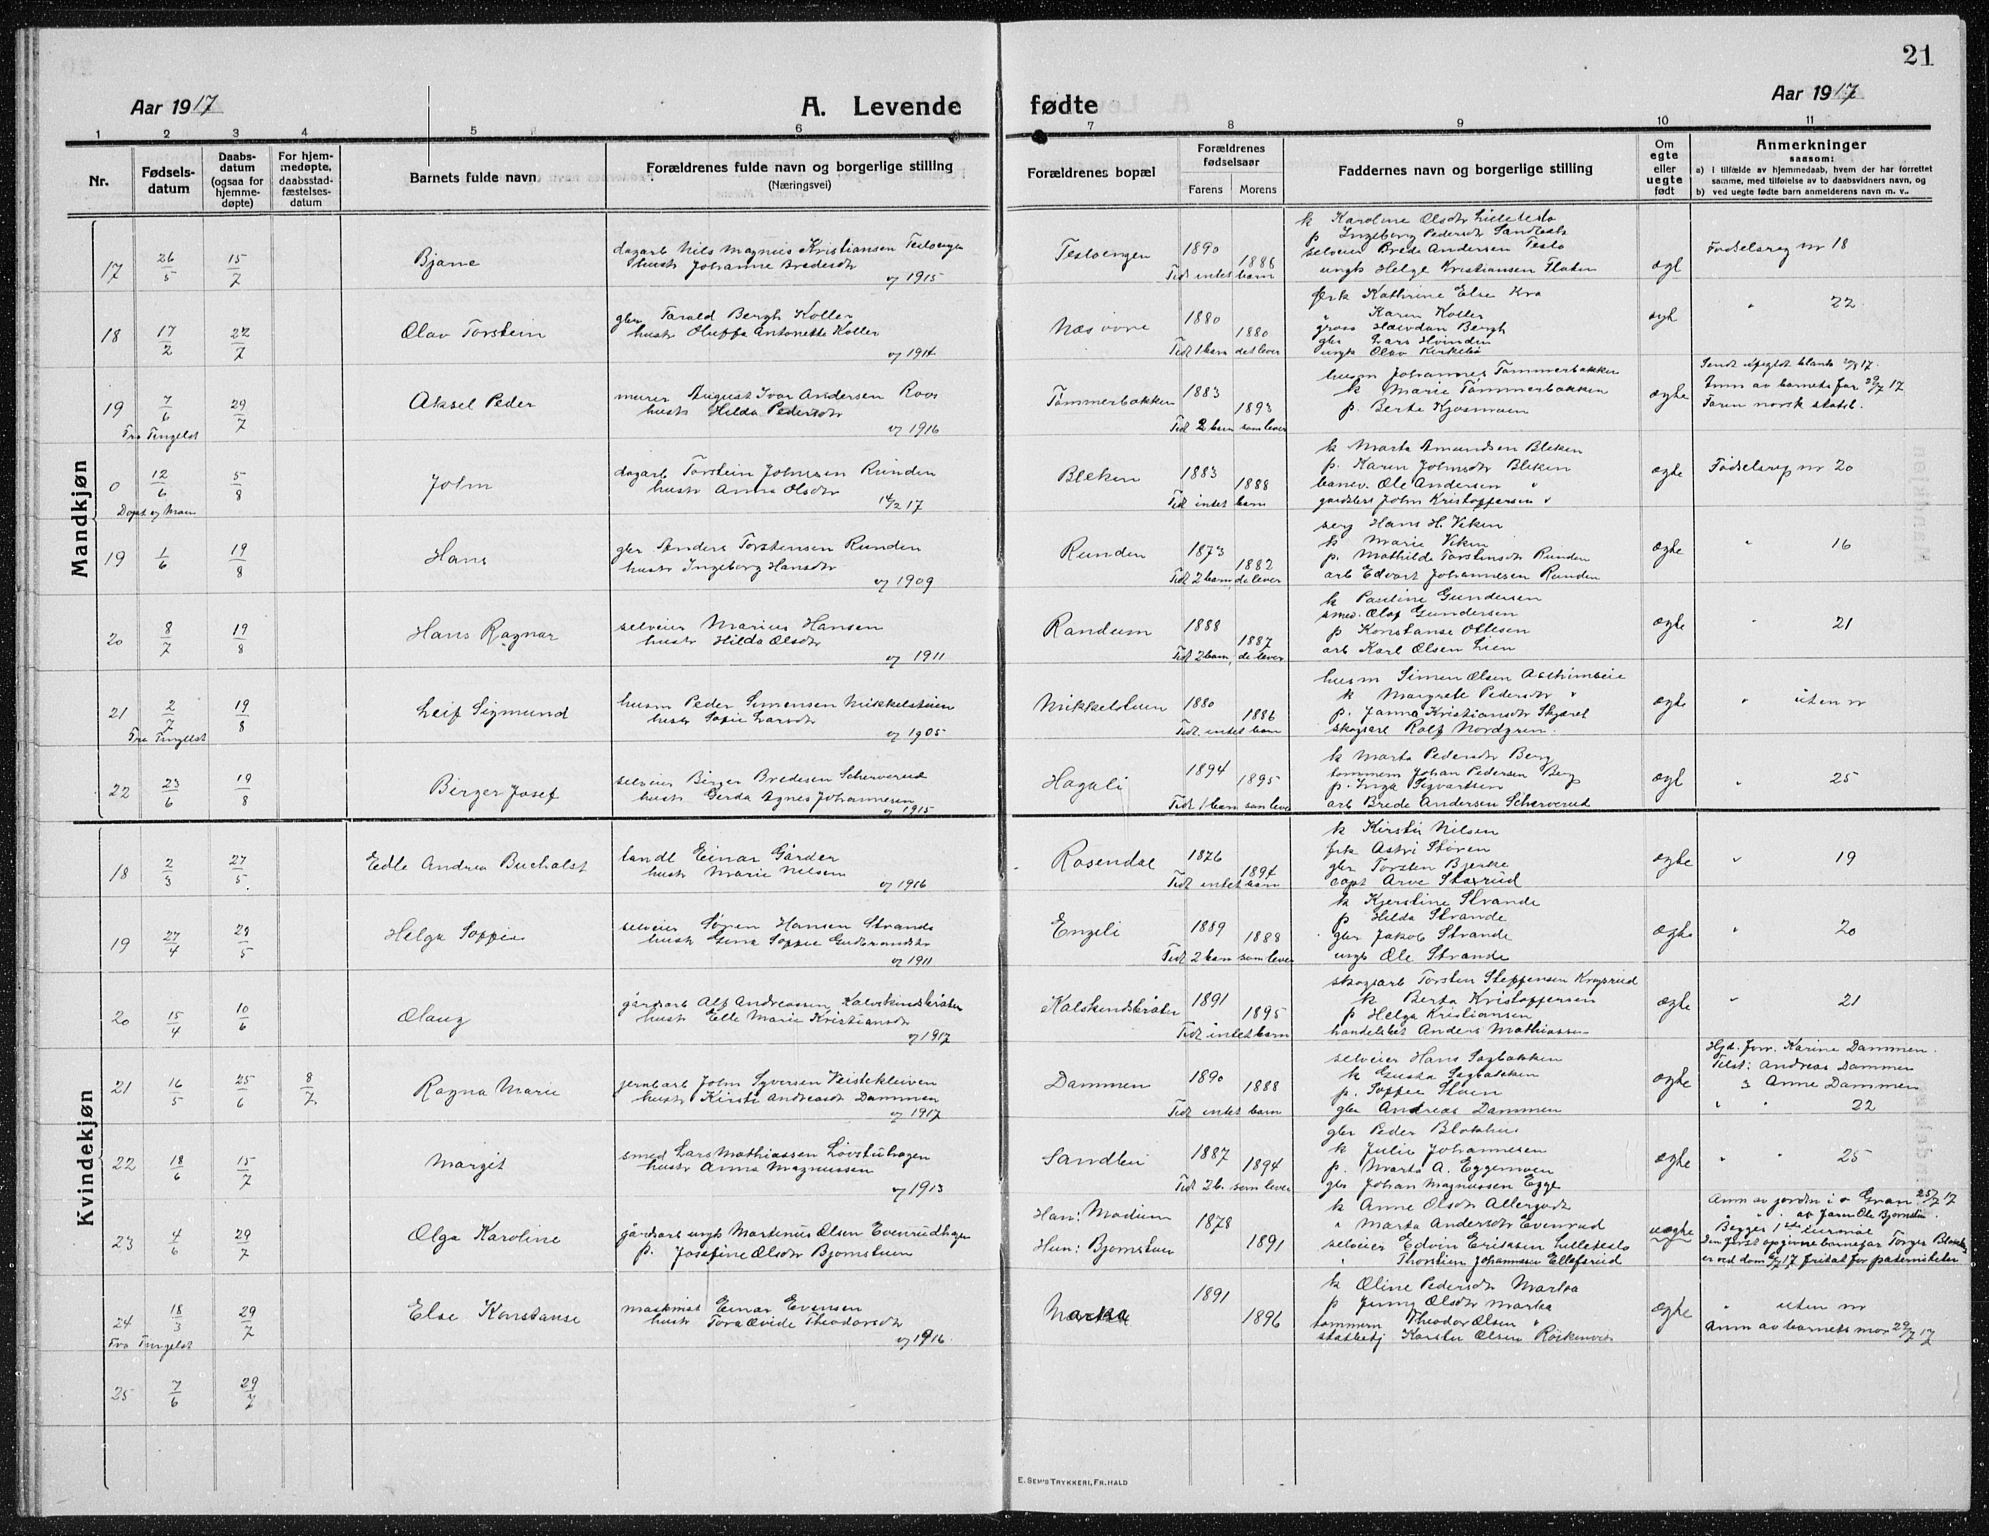 21
Aar 1917
A. Levende
fødte
Aar 1917
1 2 3 4 5 6 7 8 9 10 11
Nr.
Fødsels-
datum
Daabs-
datum
(ogsaa for
hjemme-
døpte)
For hjem-
medøpte,
daabsstad-
fæstelses-
datum
Barnets fulde navn
Forældrenes fulde navn og borgerlige stilling
(Næringsvei)
Forældrenes bopæl
Forældrenes
fødselsaar
Farens Morens
Faddernes navn og borgerlige stilling
Om
egte
eller
uegte
født
Anmerkninger
saasom:
a) I tilfælde av hjemmedaab, hvem der har forrettet
samme, med tilføielse av to daabsvidners navn, og
b) ved uegte fødte barn anmelderens navn m. v..
Mandkjøn
17 26/5 15/7 Bjane
dagarb Nils Magnus Kristiansen Tesloengen
hustr Johanne Bredesdtr
og 1915
Tesloengen 1890 1886
Tidl intet barn
k Karoline Olsdtr Lilleteslo
p Ingeborg Pedersdtr
selveier Brede Andersen Teslo
ungk Helge Kristiansen Flaten
Fødselsreg nr 18
18 17/2 22/7 Olav Torstein
gbr Tarald Bergh Koller
hustr Oluffa Antonette Koller
og 1914
Næs øvre 1880 1880
Tidl 1 barn det lever
frk Kathrine Else Kra
" Karen Koller
gross Halvdan Bergh
gbr Lars Hvinden
ungk Olav Kirkebø
" 22
19 7/6 29/7 Aksel Peder
Fra Tingelst
murer August Ivar Andersen Roos
hustr Hilda Pedersdtr
og 1916
Tømmerbakken 1883 1893
Tidl 2 barn som lever
husm Johannes Tømmerbakken
k Marie Tømmerbakken
p. Berte Kjosmoen
ægte
Anm av barnets far 29/7 17
Faren norsk statsb.
0 12/6 5/8 John
dagarb Torstein Johnsen Runden
hustr Anna Olsdtr
14/2 17
Bleken 1883 1888
Tidl intet barn
k Marta Amundsen Bleken
p. Karen Johnsdtr Bleken
banev. Ole Andersen "
gaardbrs John Kristoffersen "
ægte
Fødselsreg nr 20
19 1/6 19/8 Hans
gbr Anders Torstensen Runden
hustr Ingeborg Hansdtr
og 1909
Runden 1873 1882
Tidl 2 barn, de lever
serg Hans H. Viken
k Marie Viken
p. Mathilde Torstensdtr Runden
arb Edvart Johannesen Runden
ægte
" 16
20 8/7 19/8 Hans Ragnar
selveier Marius Hansen
hustr Hilda Olsdtr
og 1911
Randum 1888 1887
Tidl 2 barn, de lever
k Pauline Gundersen
smed. Olaf Gundersen
p Konstanse Ottesen
arb Karl Olsen Lien
ægte
" 21
21 2/7 19/8 Leif Sigmund
Fra Tingelst
husm Peder Simensen Mikkelstuen
hustr Sofie Larsdtr
og 1905
Mikkelstuen 1880 1886
Tidl. intet barn
husm Simen Olsen
k Margrete Pedersdtr "
p. Janna Kristiansdtr
skogsarb Rolf Nordgren.
ægte
" uten nr
22 23/6 19/8 Birger Josef
selveier Birger Bredesen Scherverud
hustr Gerda Agnes Johannesen
og 1915
Hagali 1894 1895
Tidl 1 barn som lever
k Marta Pedersdtr Berg
tømmerm Johan Pedersen Berg
p. Inga Sigvartsen
arb Brede Andersen Scherverud
" 25
Kvindekjøn
18 2/3 27/5 Edle Andrea Bucholst
tandl Einar Gårder
hustr Marie Nilsen
og 1916
Rosendal 1876 1894
Tidl intet barn
k Kirsti Nilsen
frk Astri Støren
gbr Torsten Bjerke
capt Arve Staxrud
ægte
" 19
19 27/4 29/5 Helga Soffie
selveier Søren Hansen Strande
hustr Gina Soffie Gulbrandsdtr
og 1911
Engeli 1889 1888
Tidl 2 barn som lever
k Kjerstine Strande
p Hilda Strande
gbr Jakob Strande
ungk Ole Strande
ægte
" 20
20 15/4 10/6 Olaug
gårdsarb Alf Andreassen Kalvskindskråter
hustr Elle Marie Kristiansdtr
og 1917
1891 1895
Tidl intet barn
skogsarb Torsten Steffensen
k Berta Kristoffersen
p Helga Kristiansen
Anders Mathiassen
ægte
" 21
21 16/5 25/6 8/7 Ragna Marie
jernbarb John Syversen
hustr Kirsti Andreasdt Dammen
og 1917
Dammen 1890 1888
Tidl intet barn
selveier Hans Sagbakken
k Gusta Sagbakken
p. Soffie Støen
gbr Andreas Dammen
ægte
Hjd. forr. Karine Dammen.
Tilst: Andreas Dammen
og Anne Dammen
" " 22
22 18/6 15/7 Margit
smed Lars Mathiassen Løvstuhagen
hustr Anna Magnussen
og 1913
1887 1894
Tidl 2 b. som lever
gbr Peder Blokhus
k Julie Johannesen
p. Marta A. Eggemoen
gbr Johan Magnussen Egge
ægte
" " 25
23 4/6 29/7 Olga Karoline
gårdsarb ungk Martinus Olsen Evenrudhagen
p. Josefine Olsdtr Bjørnstuen
Han: Modum 1878
Hun: Bjørnstuen 1891
k Anne Olsdtr
" Marta Andersdtr Evenrud
selveier Edvin Eriksen Lilleteslo
" Thorstein Johannessen Ellefsrud
uægte
Anm av jordm i Gran 25/7 17
" " av faren Ole Bjørnstu.
Begges 1ste
Den først opgivne barnefar Torger
er ved dom 17 fritat for paterniteten
24 18/3 29/7 Else Konstanse
Fra Tingelst
maskinist Einar Evensen
hustr Tora Theodorsdtr
og 1916.
Marka 1891 1896
k Oline Pedersdtr Marka
p Jenny Olsdtr Marka
tømmerm Theodor Olsen "
Karsten Olsen
ægte
" uten nr
Anm av barnets mor 29/7 17
25 7/6 29/7
E. SEM'S TRYKKERI, FR. HALD